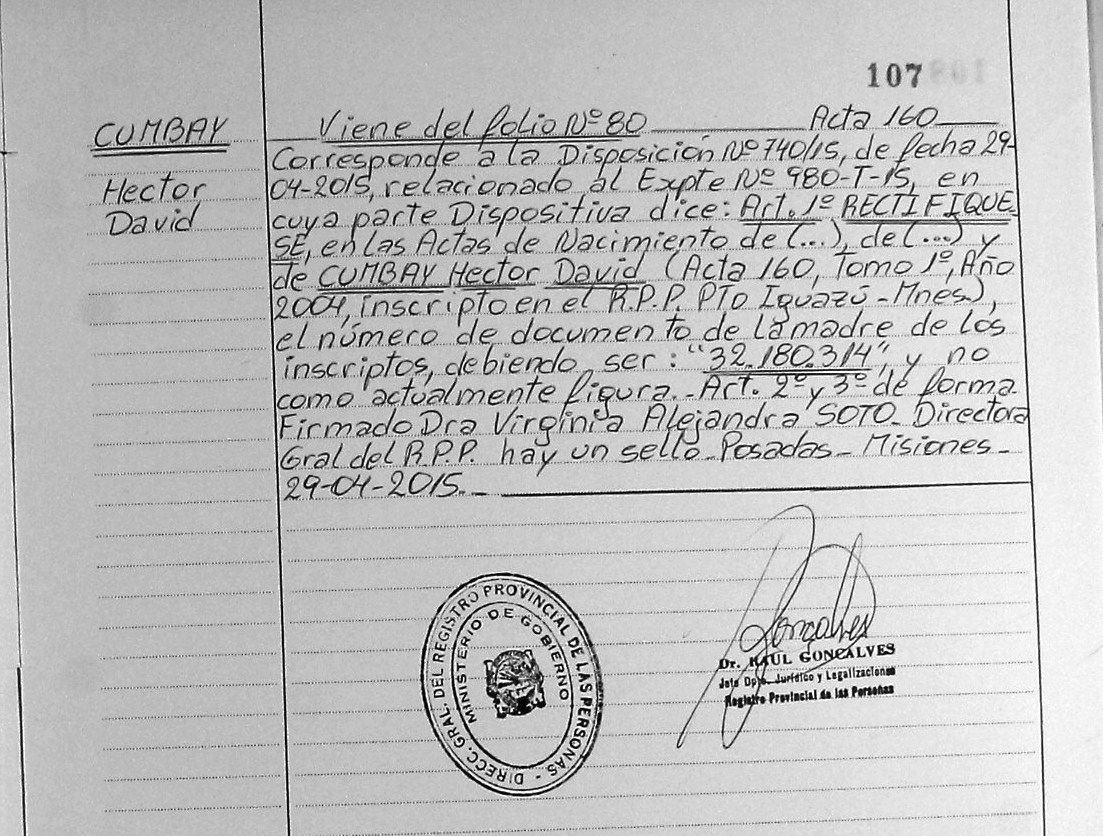 107
CUMBAY
Hector
David
Viene del folio Nº 80 Acta 160
Corresponde a la Disposición Nº 740/15, de fecha 29-
04-2015, relacionado al Expte Nº 980-T-15, en
cuya parte Dispositiva dice: Art. 1º RECTIFIQUE
SE, en las Actas de Nacimiento de (...), de (...) y
de CUMBAY Hector David (Acta 160, Tomo 1º, Año
2004, inscripto en el R.P.P. Pto Iguazú - Mnes.),
el número de documento de la madre de los
inscriptos, debiendo ser: "32.180.314", y no
como actualmente figura.- Art. 2º y 3º de forma
Firmado Dra Virginia Alejandra SOTO- Directora
Gral del R.P.P. hay un sello- Posadas- Misiones-
29-04-2015.-
DIRECC. GRAL. DEL REGISTRO PROVINCIAL DE LAS PERSONAS -
MINISTERIO DE GOBIERNO
Goncalves
Dr. RAUL GONCALVES
Jefe Dpto. Jurídico y Legalizaciones
Registro Provincial de las Personas